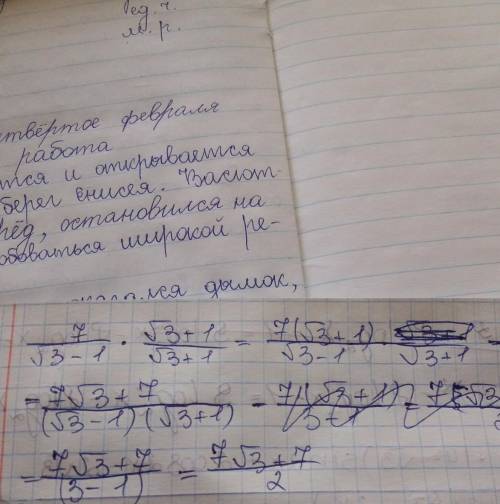 ед. ч.
м. р.
твёртое февраля
работа
тся и открывается
берег енисея. Васют-
рёд, остановился на
боваться широкой ре-
дымок,
7/(√3-1) · (√3+1)/(√3+1) = 7(√3+1)/(√3-1) /(√3+1) =
= (7√3+7)/((√3-1)(√3+1)) = 7(√3+1)/(3-1) =
= (7√3+7)/(3-1) = (7√3+7)/2